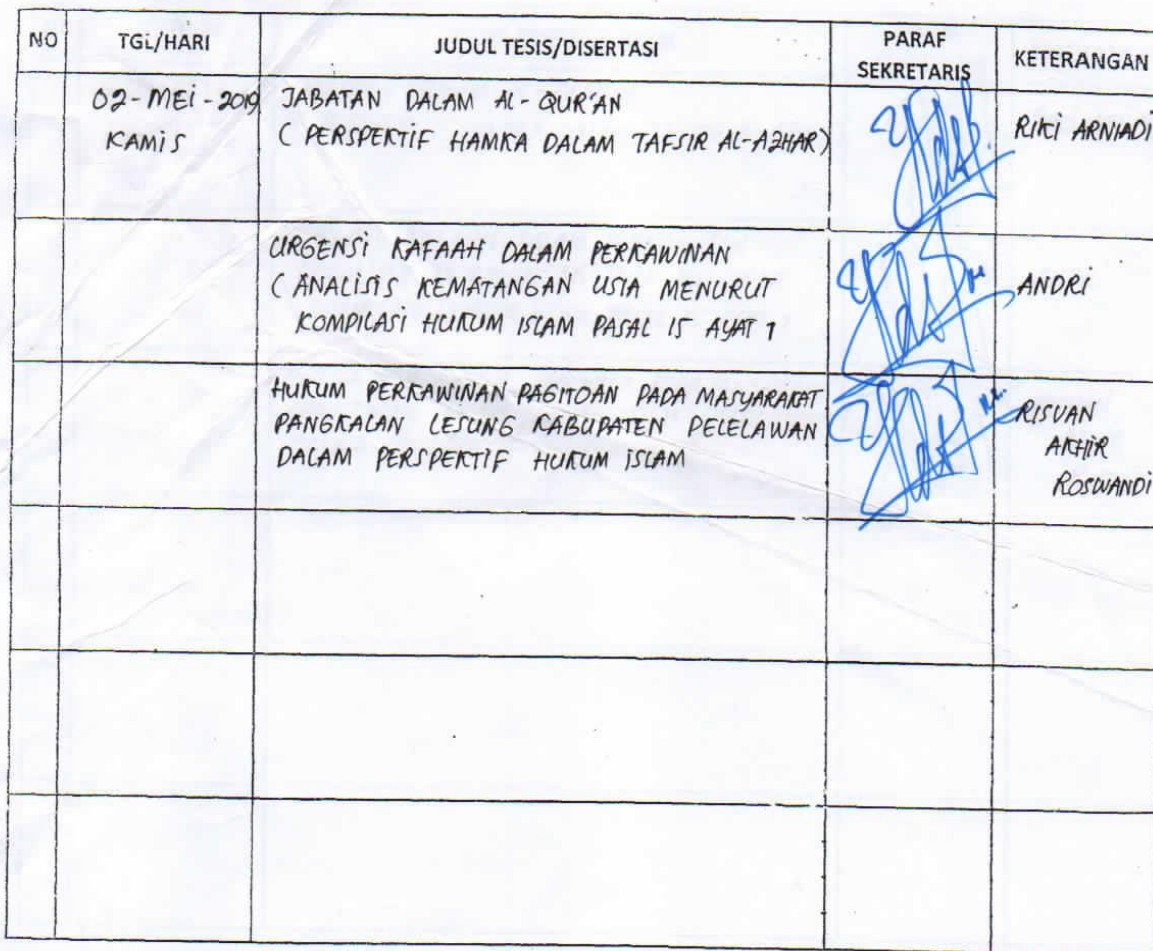 NO TGL/HARI JUDUL TESIS/DISERTASI PARAF SEKRETARIS KETERANGAN
02-MEI-2019 JABATAN DALAM AL-QUR'AN RIKI ARNIADI
KAMIS ( PERSPEKTIF HAMKA DALAM TAFSIR AL-AZHAR)
URGENSI KAFAAH DALAM PERKAWINAN ANDRI
( ANALISIS KEMATANGAN USIA MENURUT
KOMPILASI HUKUM ISLAM PASAL 15 AYAT 1
HUKUM PERKAWINAN PAGITOAN PADA MASYARAKAT RISVAN
PANGKALAN LESUNG KABUPATEN PELELAWAN AKHIR
DALAM PERSPEKTIF HUKUM ISLAM ROSWANDI